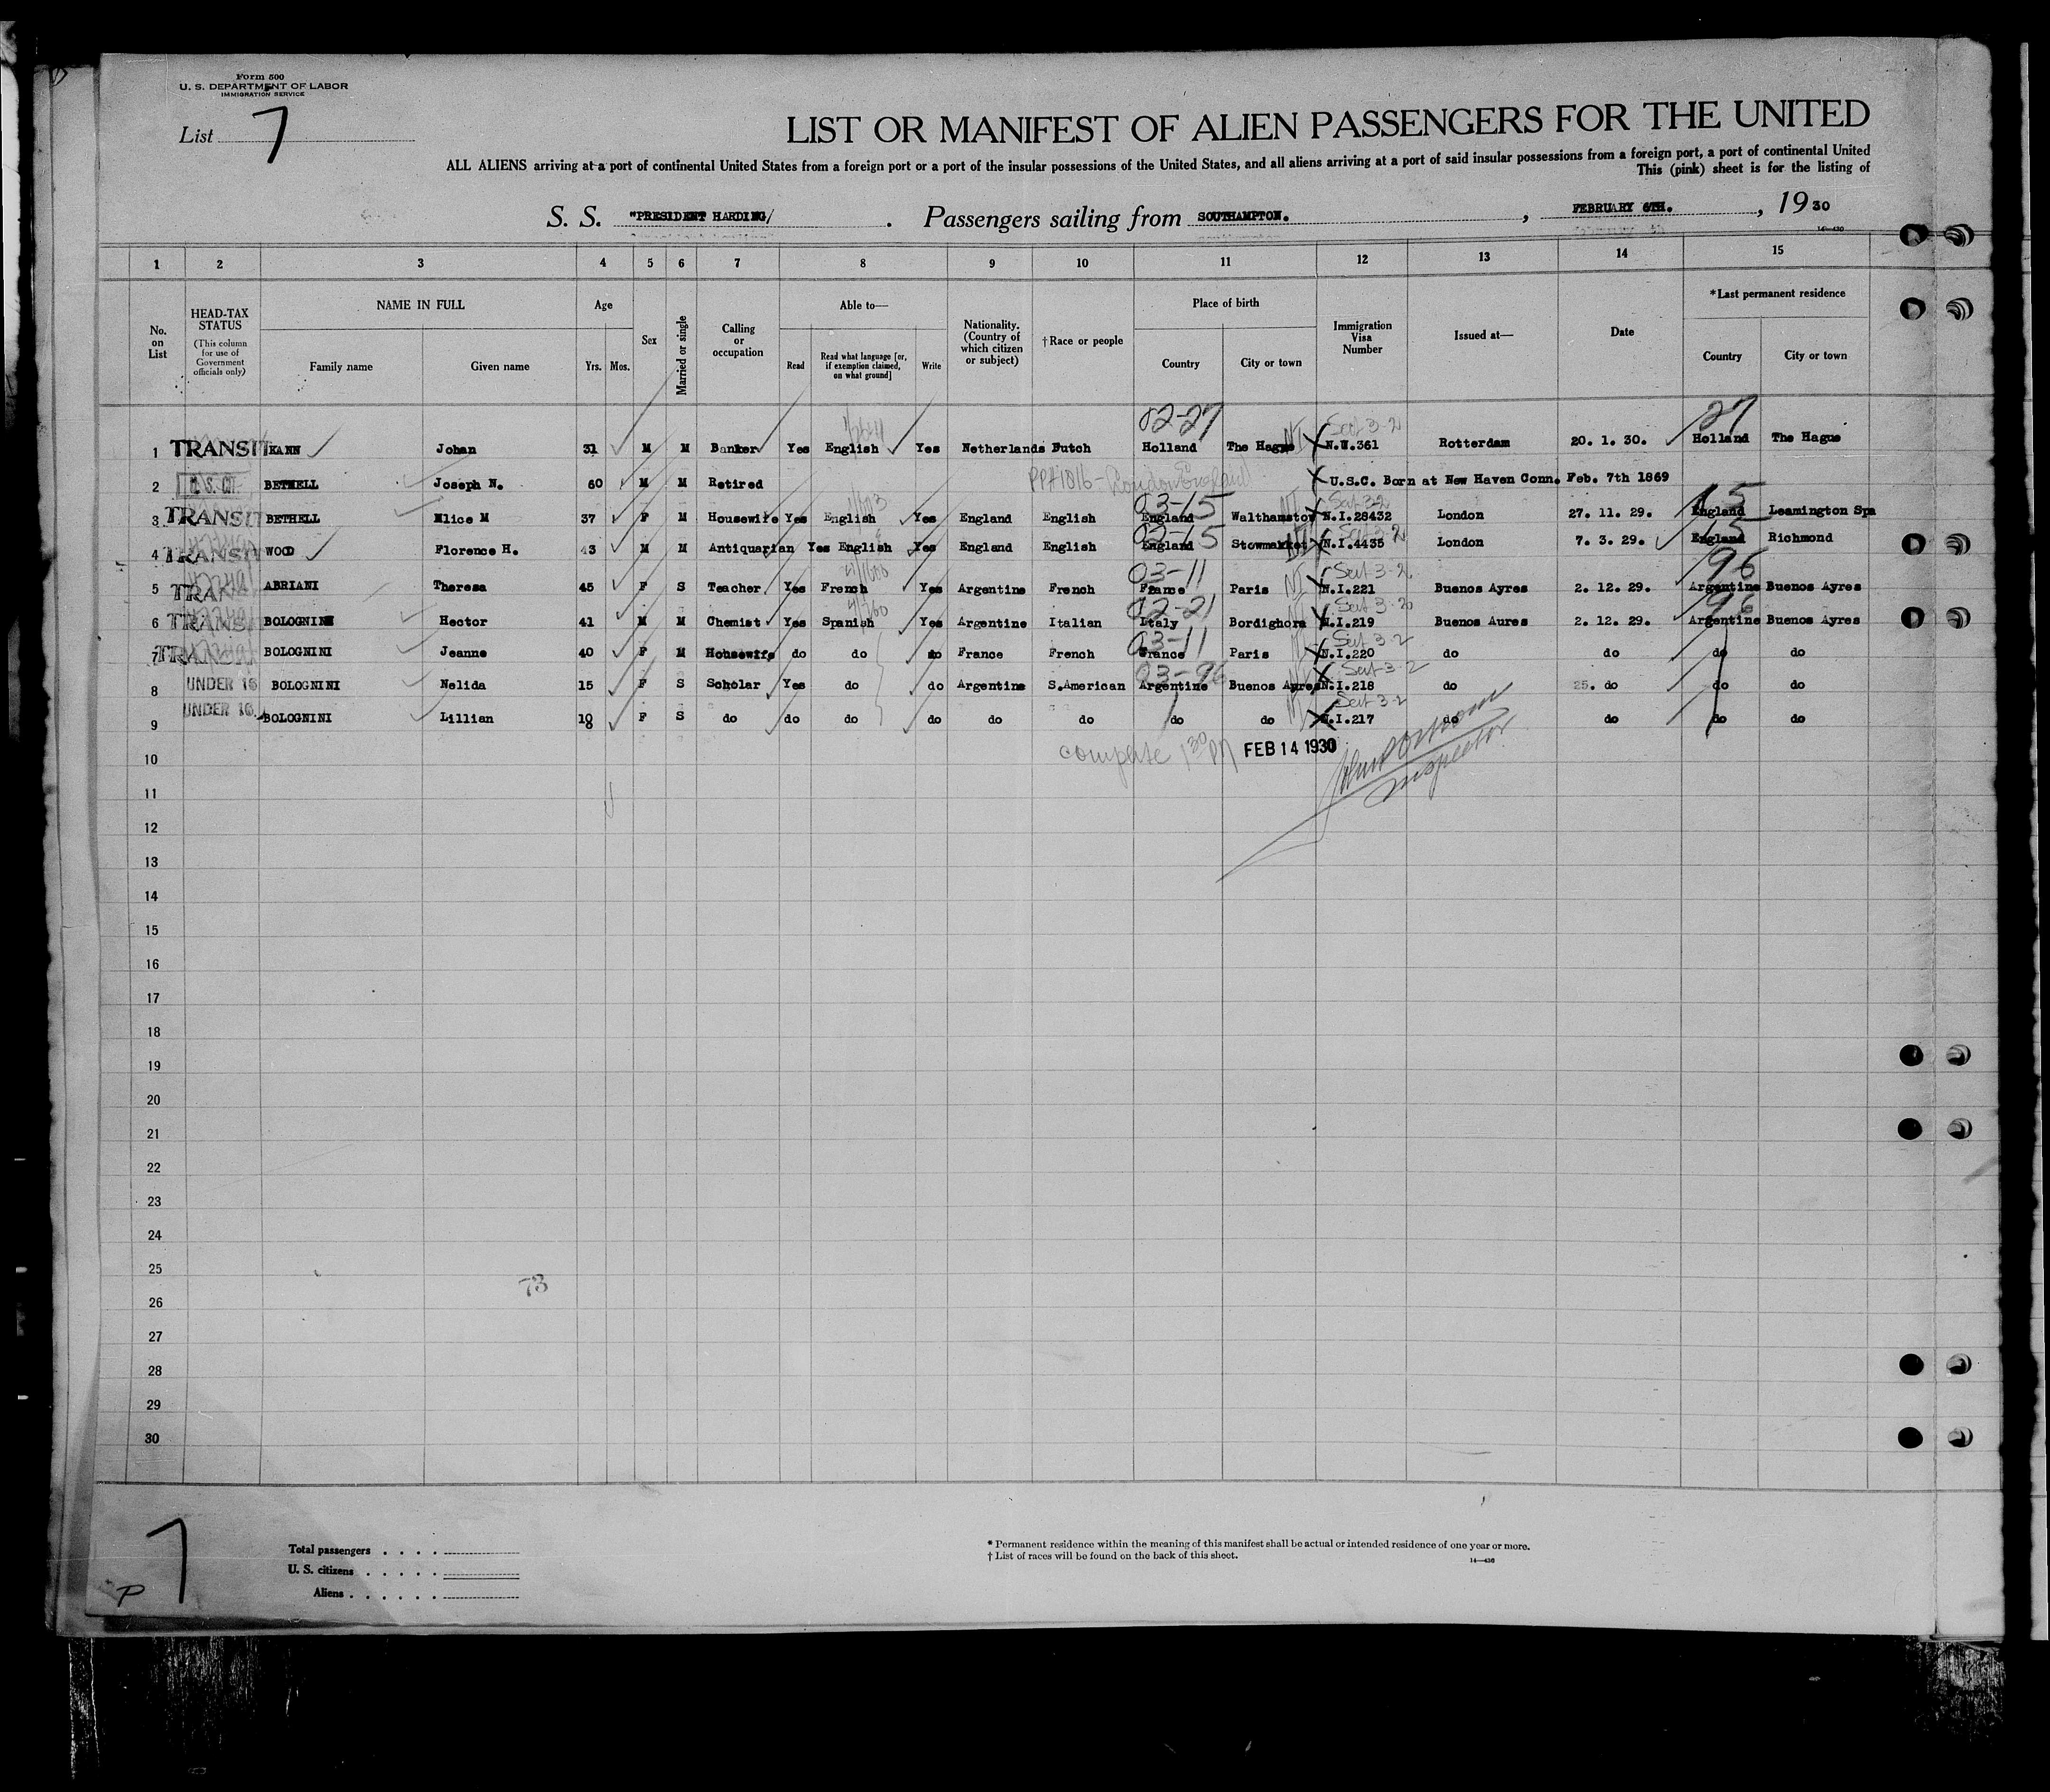 Form 500
U. S. DEPARTMENT OF LABOR
IMMIGRATION SERVICE
List 7
LIST OR MANIFEST OF ALIEN PASSENGERS FOR THE UNITED
ALL ALIENS arriving at a port of continental United States from a foreign port or a port of the insular possessions of the United States, and all aliens arriving at a port of said insular possessions from a foreign port, a port of continental United
This (pink) sheet is for the listing of
S. S. "PRESIDENT HARDING/ . Passengers sailing from SOUTHAMPTON. , FEBRUARY 6TH. , 19 30
1 2 3 4 5 6 7 8 9 10 11 12 13 14 15
No. on List
HEAD-TAX STATUS
(This column for use of Government officials only)
NAME IN FULL
Family name Given name
Age
Yrs. Mos.
Sex
Married or single
Calling or occupation
Able to—
Read
Read what language [or, if exemption claimed, on what ground]
Write
Nationality. (Country of which citizen or subject)
†Race or people
Place of birth
Country City or town
Immigration Visa Number
Issued at—
Date
*Last permanent residence
Country City or town
02-27 Sect 3-2 27
1 TRANSIT KANN Johan 31 M M Banker Yes English Yes Netherlands Dutch Holland The Hague N.W.361 Rotterdam 20. 1. 30. Holland The Hague
2 BETHELL Joseph N. 60 M M Retired London England U.S.C. Born at New Haven Conn. Feb. 7th 1869
03-15 Sect 3-2 15
3 TRANSIT BETHELL Alice M 37 F M Housewife Yes English Yes England English England Walthamstow N.I.28432 London 27. 11. 29. England Leamington Spa
03-15 15
4 TRANSIT WOOD Florence H. 43 M M Antiquarian Yes English Yes England English England Stowmarket N.I.4435 London 7. 3. 29. England Richmond
03-11 Sect 3-2 96
5 TRANSIT ABRIANI Theresa 45 F S Teacher Yes French Yes Argentine French France Paris N.I.221 Buenos Ayres 2. 12. 29. Argentine Buenos Ayres
02-21 Sect 3-2 96
6 TRANSIT BOLOGNINI Hector 41 M M Chemist Yes Spanish Yes Argentine Italian Italy Bordighora N.I.219 Buenos Aures 2. 12. 29. Argentine Buenos Ayres
03-11 Sect 3-2
7 TRANSIT BOLOGNINI Jeanne 40 F M Housewife do do do France French France Paris N.I.220 do do do do
03-96 Sect 3-2
8 UNDER 16 BOLOGNINI Nelida 15 F S Scholar Yes do do Argentine S.American Argentine Buenos Ayres N.I.218 do 25. do do do
Sect 3-2
9 UNDER 16. BOLOGNINI Lillian 10 F S do do do do do do do do N.I.217 do do do do
complete 1 30 PM FEB 14 1930
Inspector
10
11
12
13
14
15
16
17
18
19
20
21
22
23
24
25
73
26
27
28
29
30
7
P
Total passengers . . . .
U. S. citizens . . . . .
Aliens . . . . . .
* Permanent residence within the meaning of this manifest shall be actual or intended residence of one year or more.
† List of races will be found on the back of this sheet.
14—430